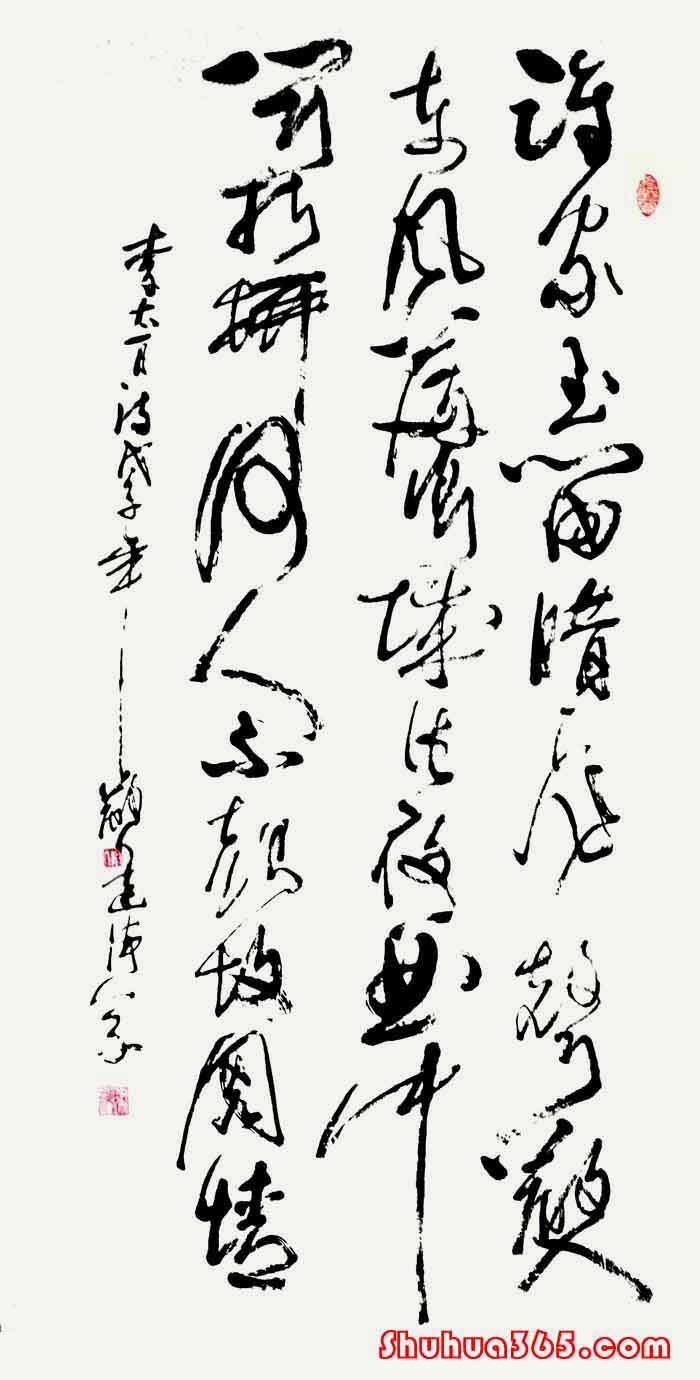 誰家玉笛暗飛聲散入
春風滿洛城此夜曲中
聞折柳何人不起故園情
李太白詩戊子年
Shuhua365.com